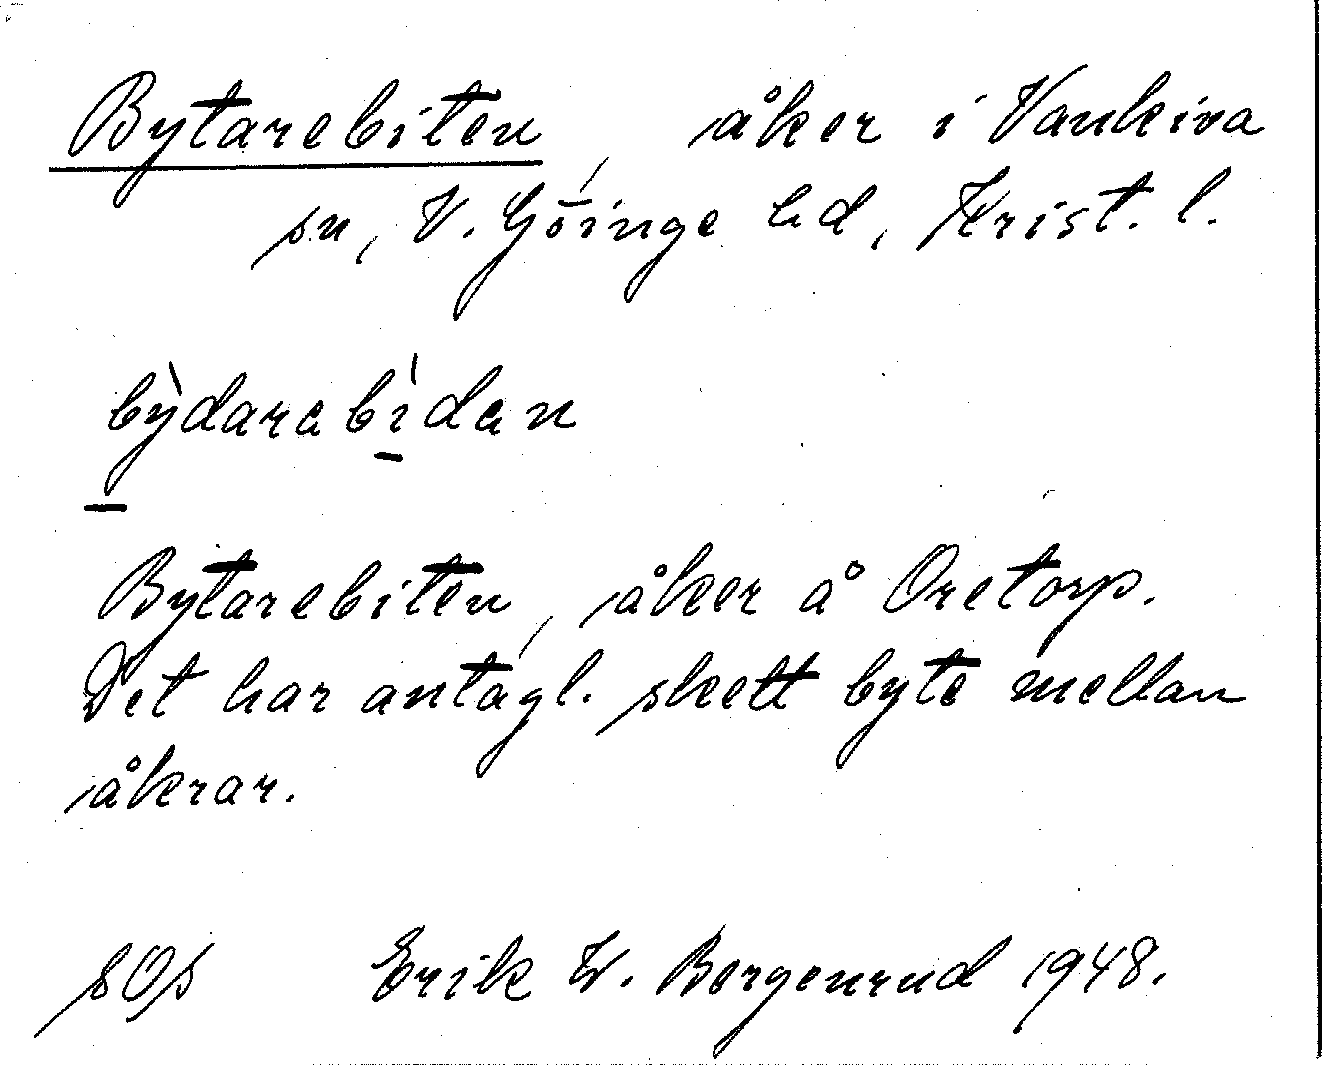 Bytarebiten, åker i Vankiva
sn, V. Göinge hd, Krist. l.
bỳdarabìdan
Bytarebiten, åker å Oretorp.
Det har antagl. skett byte mellan
åkrar.
Erik W. Bergenrud 1948.